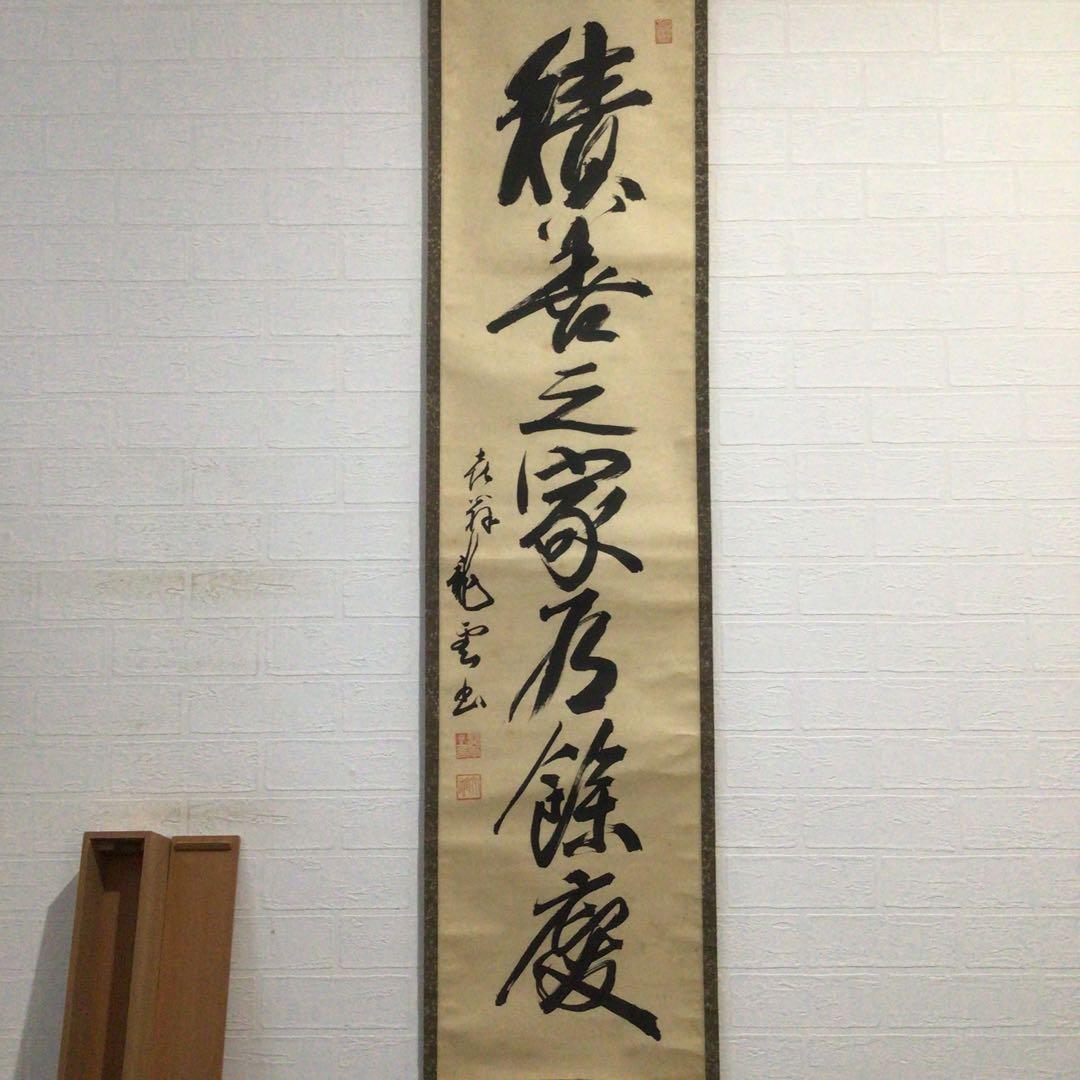 積善之家有餘慶
龍雲書